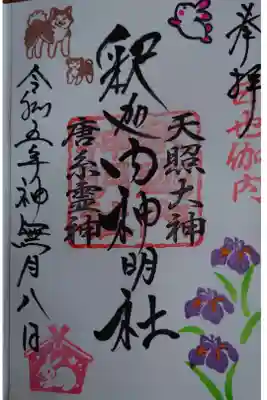 奉拝
日也伽内
天照大神
釈迦内神明社
唐糸霊神
令和五年神無月八日